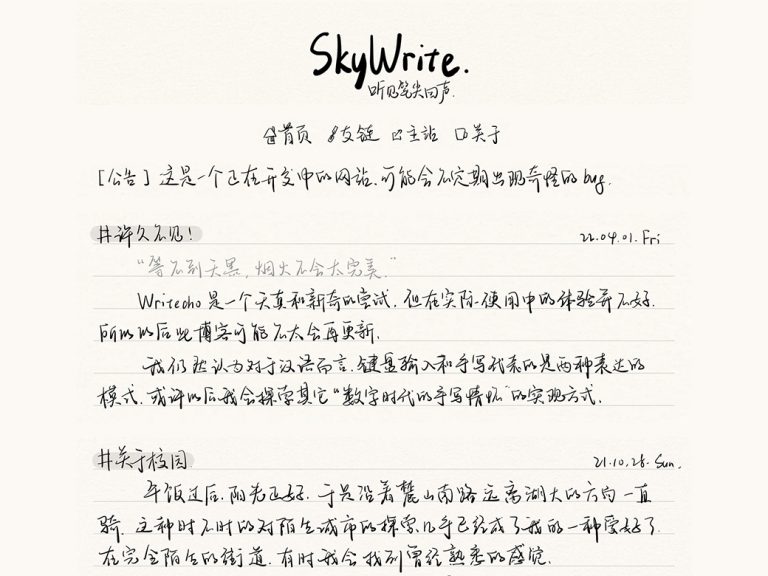 SkyWrite.
听见笔尖回声.
首页 友链 主站 关于
[公告] 这是一个正在开发中的网站,可能会不定期出现奇怪的bug.
#许久不见!
22.04.01. Fri
“等不到天黑, 烟火不会太完美.”
Writecho 是一个天真和新奇的尝试, 但在实际使用中的体验并不好.
所以以后此博客可能不太会再更新.
我仍然认为对于汉语而言, 键盘输入和手写代表的是两种表达的
模式. 或许以后我会探索其它“数字时代的手写情怀”的实现方式.
#关于校园
21.10.28. Sun.
午饭过后, 阳光正好, 于是沿着麓山南路远离湖大的方向一直
骑. 这种时不时的对陌生城市的探索几乎已经成了我的一种爱好了.
在完全陌生的街道, 有时我会找到曾经熟悉的感觉.